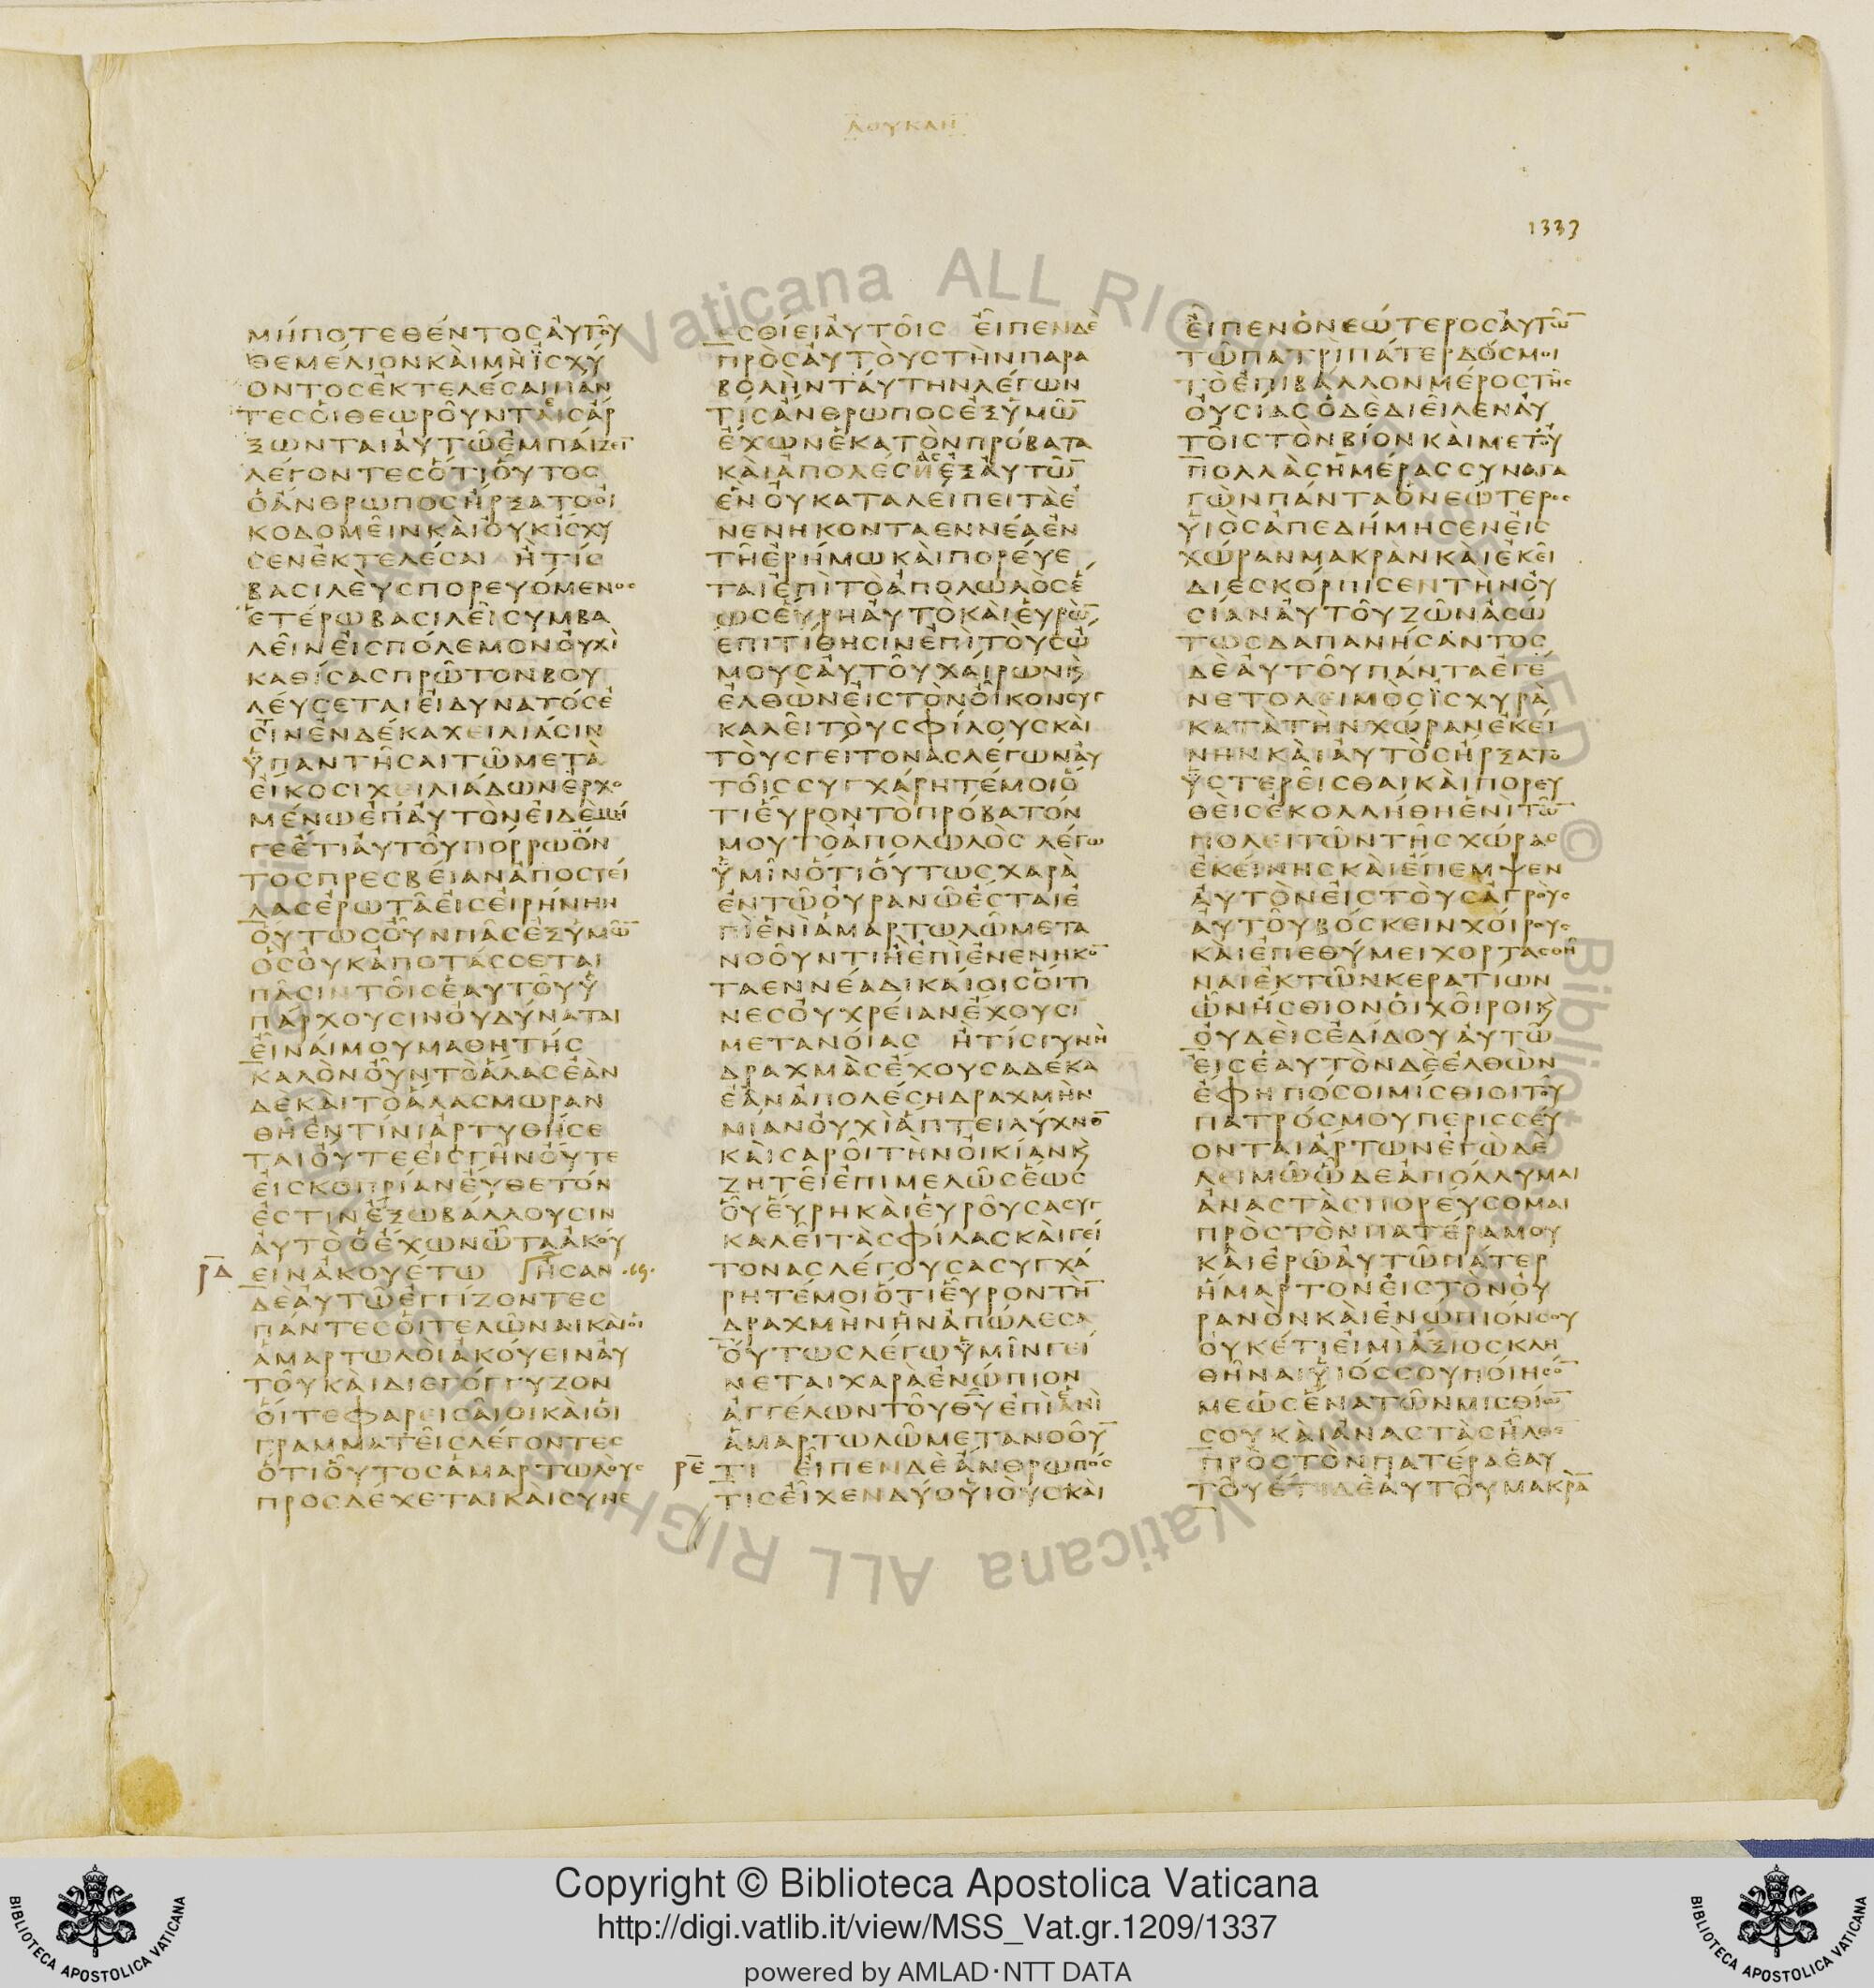 ΛΟΥΚΑΝ
1333
ΜΗΠΟΤΕΘΕΝΤΟΣΑΥΤΟΥ
ΘΕΜΕΛΙΟΝΚΑΙΜΗΪΣΧΥ
ΟΝΤΟΣΕΚΤΕΛΕΣΑΙΠΑΝ
ΤΕΣΟΙΘΕΩΡΟΥΝΤΑΙΣΑΡ
ΞΩΝΤΑΙΑΥΤΩΕΜΠΑΙΖΕΙ
ΛΕΓΟΝΤΕΣΟΤΙΟΥΤΟΣ
ΟΑΝΘΡΩΠΟΣΗΡΞΑΤΟΟΙ
ΚΟΔΟΜΕΙΝΚΑΙΟΥΚΙΣΧΥ
ΣΕΝΕΚΤΕΛΕΣΑΙ ΗΤΙΣ
ΒΑΣΙΛΕΥΣΠΟΡΕΥΟΜΕΝΟΣ
ΕΤΕΡΩΒΑΣΙΛΕΙΣΥΜΒΑ
ΛΕΙΝΕΙΣΠΟΛΕΜΟΝΟΥΧΙ
ΚΑΘΙΣΑΣΠΡΩΤΟΝΒΟΥ
ΛΕΥΣΕΤΑΙΕΙΔΥΝΑΤΟΣΕ
ΣΤΙΝΕΝΔΕΚΑΧΕΙΛΙΑΣΙΝ
ΥΠΑΝΤΗΣΑΙΤΩΜΕΤΑ
ΕΙΚΟΣΙΧΕΙΛΙΑΔΩΝΕΡΧΟ
ΜΕΝΩΕΠΑΥΤΟΝΕΙΔΕΜΗ
ΓΕΕΤΙΑΥΤΟΥΠΟΡΡΩΟΝ
ΤΟΣΠΡΕΣΒΕΙΑΝΑΠΟΣΤΕΙ
ΛΑΣΕΡΩΤΑΕΙΣΕΙΡΗΝΗΝ
ΟΥΤΩΣΟΥΝΠΑΣΕΞΥΜΩ̅
ΟΣΟΥΚΑΠΟΤΑΣΣΕΤΑΙ
ΠΑΣΙΝΤΟΙΣΕΑΥΤΟΥΥ
ΠΑΡΧΟΥΣΙΝΟΥΔΥΝΑΤΑΙ
ΕΙΝΑΙΜΟΥΜΑΘΗΤΗΣ
ΚΑΛΟΝΟΥΝΤΟΑΛΑΣΕΑΝ
ΔΕΚΑΙΤΟΑΛΑΣΜΩΡΑΝ
ΘΗΕΝΤΙΝΙΑΡΤΥΘΗΣΕ
ΤΑΙΟΥΤΕΕΙΣΓΗΝΟΥΤΕ
ΕΙΣΚΟΠΡΙΑΝΕΥΘΕΤΟΝ
ΕΣΤΙΝΕΞΩΒΑΛΛΟΥΣΙΝ
ΑΥΤΟΟΕΧΩΝΩΤΑΑΚΟΥ
ΡΔ ΕΙΝΑΚΟΥΕΤΩ ΗΣΑΝ
ΔΕΑΥΤΩΕΓΓΙΖΟΝΤΕΣ
ΠΑΝΤΕΣΟΙΤΕΛΩΝΑΙΚΑΙΟΙ
ΑΜΑΡΤΩΛΟΙΑΚΟΥΕΙΝΑΥ
ΤΟΥΚΑΙΔΙΕΓΟΓΓΥΖΟΝ
ΟΙΤΕΦΑΡΕΙΣΑΙΟΙΚΑΙΟΙ
ΓΡΑΜΜΑΤΕΙΣΛΕΓΟΝΤΕΣ
ΟΤΙΟΥΤΟΣΑΜΑΡΤΩΛΟΥΣ
ΠΡΟΣΔΕΧΕΤΑΙΚΑΙΣΥΝΕ
ΣΘΙΕΙΑΥΤΟΙΣ ΕΙΠΕΝΔΕ
ΠΡΟΣΑΥΤΟΥΣΤΗΝΠΑΡΑ
ΒΟΛΗΝΤΑΥΤΗΝΛΕΓΩΝ
ΤΙΣΑΝΘΡΩΠΟΣΕΞΥΜΩ̅
ΕΧΩΝΕΚΑΤΟΝΠΡΟΒΑΤΑ
ΚΑΙΑΠΟΛΕΣΗΕΞΑΥΤΩ̅
ΕΝΟΥΚΑΤΑΛΕΙΠΕΙΤΑΕ
ΝΕΝΗΚΟΝΤΑΕΝΝΕΑΕΝ
ΤΗΕΡΗΜΩΚΑΙΠΟΡΕΥΕ
ΤΑΙΕΠΙΤΟΑΠΟΛΩΛΟΣΕ
ΩΣΕΥΡΗΑΥΤΟΚΑΙΕΥΡΩ̅
ΕΠΙΤΙΘΗΣΙΝΕΠΙΤΟΥΣΩ
ΜΟΥΣΑΥΤΟΥΧΑΙΡΩΝϏ
ΕΛΘΩΝΕΙΣΤΟΝΟΙΚΟΝΣΥΓ
ΚΑΛΕΙΤΟΥΣΦΙΛΟΥΣΚΑΙ
ΤΟΥΣΓΕΙΤΟΝΑΣΛΕΓΩΝΑΥ
ΤΟΙΣΣΥΓΧΑΡΗΤΕΜΟΙΟ
ΤΙΕΥΡΟΝΤΟΠΡΟΒΑΤΟΝ
ΜΟΥΤΟΑΠΟΛΩΛΟΣ ΛΕΓΩ
ΥΜΙΝΟΤΙΟΥΤΩΣΧΑΡΑ
ΕΝΤΩΟΥΡΑΝΩΕΣΤΑΙΕ
ΠΙΕΝΙΑΜΑΡΤΩΛΩΜΕΤΑ
ΝΟΟΥΝΤΙΗΕΠΙΕΝΕΝΗΚΟ̅
ΤΑΕΝΝΕΑΔΙΚΑΙΟΙΣΟΙΤΙ
ΝΕΣΟΥΧΡΕΙΑΝΕΧΟΥΣΙ
ΜΕΤΑΝΟΙΑΣ ΗΤΙΣΓΥΝΗ
ΔΡΑΧΜΑΣΕΧΟΥΣΑΔΕΚΑ
ΕΑΝΑΠΟΛΕΣΗΔΡΑΧΜΗΝ
ΜΙΑΝΟΥΧΙΑΠΤΕΙΛΥΧΝΟ̅
ΚΑΙΣΑΡΟΙΤΗΝΟΙΚΙΑΝϏ
ΖΗΤΕΙΕΠΙΜΕΛΩΣΕΩΣ
ΟΥΕΥΡΗΚΑΙΕΥΡΟΥΣΑΣΥΓ
ΚΑΛΕΙΤΑΣΦΙΛΑΣΚΑΙΓΕΙ
ΤΟΝΑΣΛΕΓΟΥΣΑΣΥΓΧΑ
ΡΗΤΕΜΟΙΟΤΙΕΥΡΟΝΤΗ̅
ΔΡΑΧΜΗΝΗΝΑΠΩΛΕΣΑ
ΟΥΤΩΣΛΕΓΩΥΜΙΝΓΕΙ
ΝΕΤΑΙΧΑΡΑΕΝΩΠΙΟΝ
ΑΓΓΕΛΩΝΤΟΥΘ̅Υ̅ΕΠΙΕΝΙ
ΑΜΑΡΤΩΛΩΜΕΤΑΝΟΟΥ̅
ΡΕ ΤΙ ΕΙΠΕΝΔΕΑΝΘΡΩΠΟΣ
ΤΙΣΕΙΧΕΝΔΥΟΥΙΟΥΣΚΑΙ
ΕΙΠΕΝΟΝΕΩΤΕΡΟΣΑΥΤΩ̅
ΤΩΠΑΤΡΙΠΑΤΕΡΔΟΣΜΟΙ
ΤΟΕΠΙΒΑΛΛΟΝΜΕΡΟΣΤΗΣ
ΟΥΣΙΑΣΟΔΕΔΙΕΙΛΕΝΑΥ
ΤΟΙΣΤΟΝΒΙΟΝΚΑΙΜΕΤΟΥ
ΠΟΛΛΑΣΗΜΕΡΑΣΣΥΝΑΓΑ
ΓΩΝΠΑΝΤΑΟΝΕΩΤΕΡΟΣ
ΥΙΟΣΑΠΕΔΗΜΗΣΕΝΕΙΣ
ΧΩΡΑΝΜΑΚΡΑΝΚΑΙΕΚΕΙ
ΔΙΕΣΚΟΡΠΙΣΕΝΤΗΝΟΥ
ΣΙΑΝΑΥΤΟΥΖΩΝΑΣΩ
ΤΩΣΔΑΠΑΝΗΣΑΝΤΟΣ
ΔΕΑΥΤΟΥΠΑΝΤΑΕΓΕ
ΝΕΤΟΛΕΙΜΟΣΪΣΧΥΡΑ
ΚΑΤΑΤΗΝΧΩΡΑΝΕΚΕΙ
ΝΗΝΚΑΙΑΥΤΟΣΗΡΞΑΤΟ
ΥΣΤΕΡΕΙΣΘΑΙΚΑΙΠΟΡΕΥ
ΘΕΙΣΕΚΟΛΛΗΘΗΕΝΙΤΩ̅
ΠΟΛΕΙΤΩΝΤΗΣΧΩΡΑΣ
ΕΚΕΙΝΗΣΚΑΙΕΠΕΜΨΕΝ
ΑΥΤΟΝΕΙΣΤΟΥΣΑΓΡΟΥΣ
ΑΥΤΟΥΒΟΣΚΕΙΝΧΟΙΡΟΥΣ
ΚΑΙΕΠΕΘΥΜΕΙΧΟΡΤΑΣΘΗ
ΝΑΙΕΚΤΩΝΚΕΡΑΤΙΩΝ
ΩΝΗΣΘΙΟΝΟΙΧΟΙΡΟΙϏ
ΟΥΔΕΙΣΕΔΙΔΟΥΑΥΤΩ
ΕΙΣΕΑΥΤΟΝΔΕΕΛΘΩΝ
ΕΦΗΠΟΣΟΙΜΙΣΘΙΟΙΤΟΥ
ΠΑΤΡΟΣΜΟΥΠΕΡΙΣΣΕΥ
ΟΝΤΑΙΑΡΤΩΝΕΓΩΔΕ
ΛΕΙΜΩΩΔΕΑΠΟΛΛΥΜΑΙ
ΑΝΑΣΤΑΣΠΟΡΕΥΣΟΜΑΙ
ΠΡΟΣΤΟΝΠΑΤΕΡΑΜΟΥ
ΚΑΙΕΡΩΑΥΤΩΠΑΤΕΡ
ΗΜΑΡΤΟΝΕΙΣΤΟΝΟΥ
ΡΑΝΟΝΚΑΙΕΝΩΠΙΟΝΣΟΥ
ΟΥΚΕΤΙΕΙΜΙΑΞΙΟΣΚΛΗ
ΘΗΝΑΙΥΙΟΣΣΟΥΠΟΙΗΣΟ̅
ΜΕΩΣΕΝΑΤΩΝΜΙΣΘΙΩ̅
ΣΟΥΚΑΙΑΝΑΣΤΑΣΗΛΘΕ
ΠΡΟΣΤΟΝΠΑΤΕΡΑΕΑΥ
ΤΟΥΕΤΙΔΕΑΥΤΟΥΜΑΚΡΑ̅
Vaticana ALL RIGHTS RESERVED © Biblioteca
Vaticana ALL RIGHTS
Copyright © Biblioteca Apostolica Vaticana
http://digi.vatlib.it/view/MSS_Vat.gr.1209/1337
powered by AMLAD·NTT DATA
BIBLIOTECA APOSTOLICA VATICANA
BIBLIOTECA APOSTOLICA VATICANA